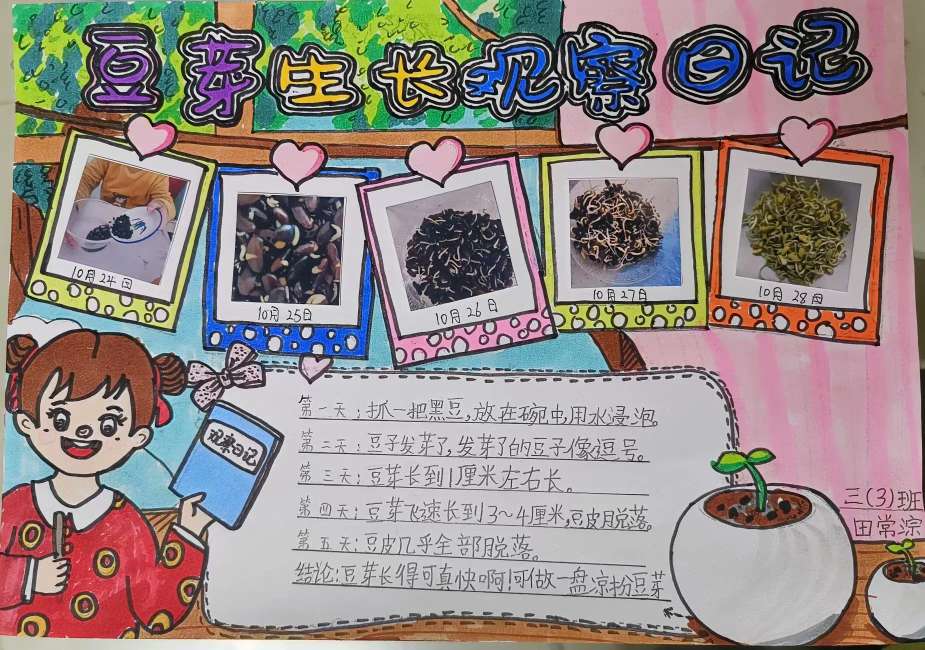 豆芽生长观察日记
10月24日
10月25日
10月26日
10月27日
10月28日
观察日记
第一天：抓一把黑豆，放在碗中，用水浸泡。
第二天：豆子发芽了，发芽了的豆子像逗号。
第三天：豆芽长到1厘米左右长。
第四天：豆芽飞速长到3～4厘米，豆皮脱落。
第五天：豆皮几乎全部脱落。
结论：豆芽长得可真快啊！可做一盘凉扮豆芽
三(3)班
田常淙